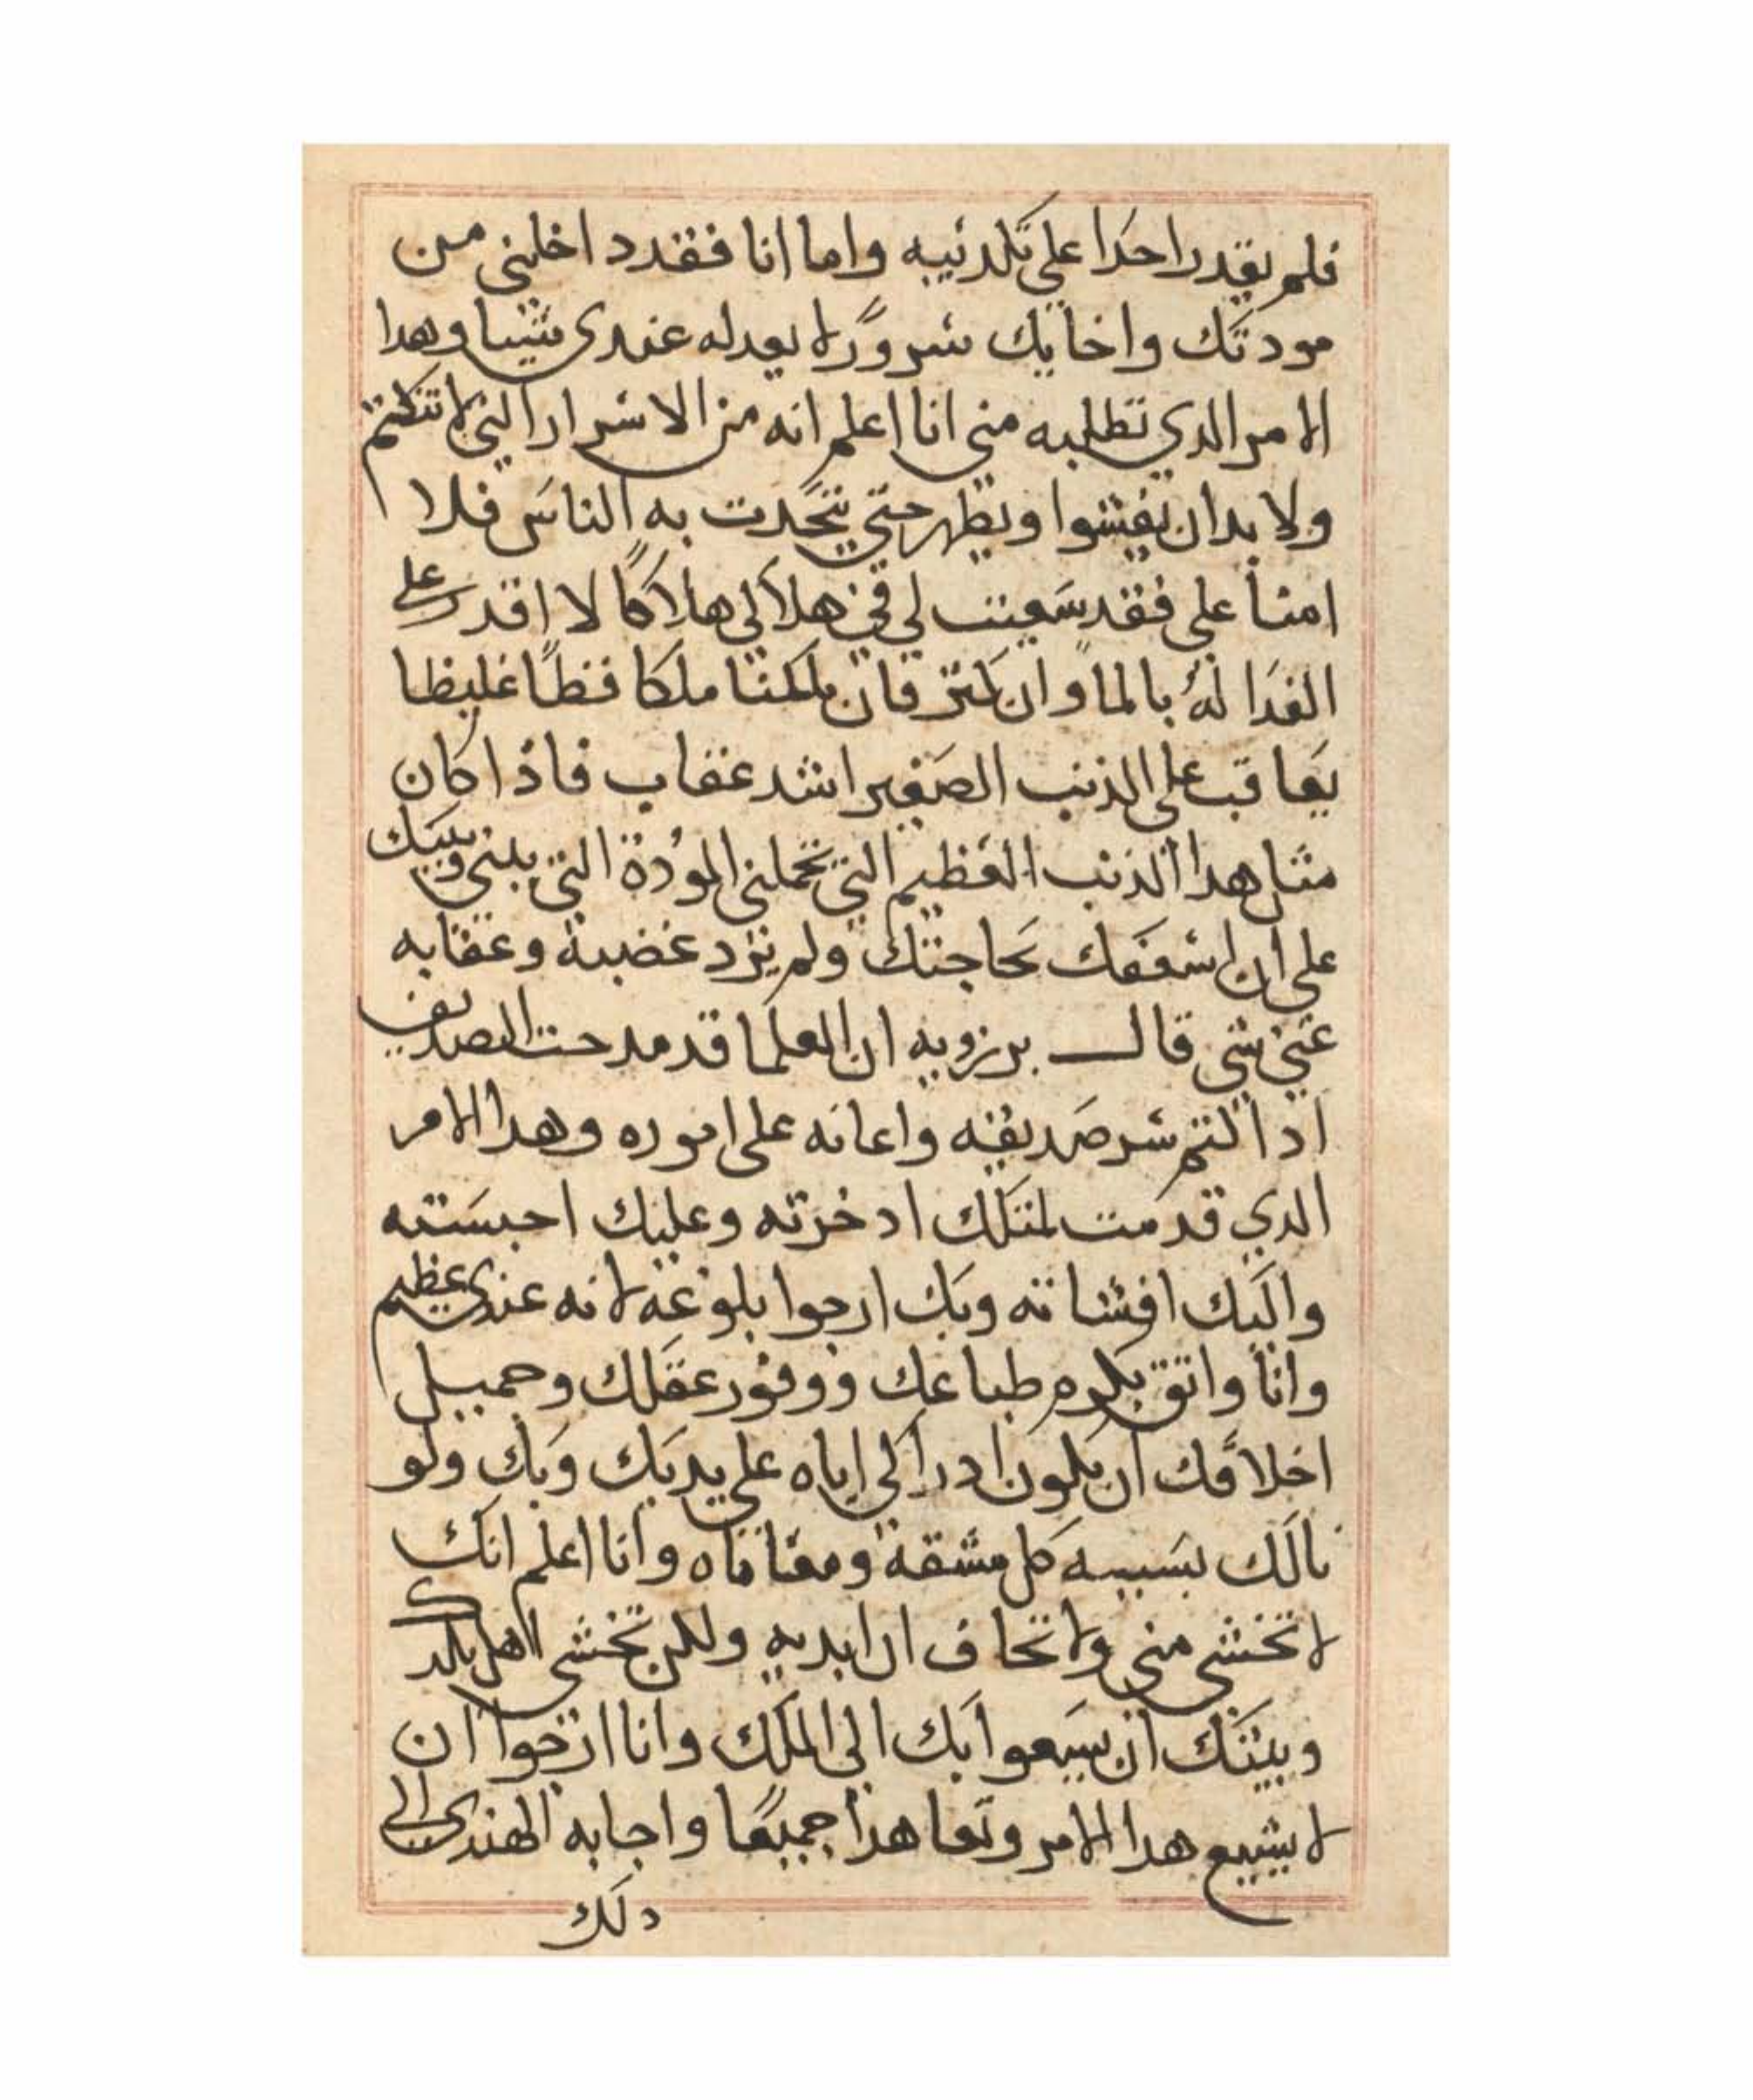 فلم يقدر احدا على تكدئيبه واما انا فقد داخلني من
مودتك واخايك سرورًا لا يعدله عندي شيئا وهدا
الامر الدي تطلبه مني انا اعلم انه من الاسرار التي لا تنكتم
ولا بد ان يفشوا ويظهر حتي يتحدت به الناس فلا
امشا علي فقد سعيت لي في هلاكي هلاكًا لا اقدر على
الفدا لهُ بالما وان كتر فان ملكنا ملكا فظًا غليظا
يعاقب على الذنب الصغير اشد عقاب فاذا كان
مثل هدا الذنب العظيم التي تحملني المودة التي بيني وبينك
على ان اسعفك بحاجتك ولم يرد غضبه وعقابه
عني شي قال برزويه ان العلما قد مدحت الصديق
ادا اكتم سر صديقه واعانه على اموره وهدا الامر
الدي قدمت لمتلك ادخرته وعليك احبسته
واليك افشاته وبك ارجوا بلوغه لانه عندي عظيم
وانا واتق بكرم طباعك ووفور عقلك وجميل
اخلاقك ان يكون ادراكي اياه على يديك وبك ولو
نالك بسببه كل مشقة ومعاناه وانا اعلم انك
لا تخشي مني ولا تخاف ان ابديه ولكن تخشي اهل بلدك
وبيتك ان يسعوا بك الي الملك وانا ارجوا ان
لا يشيع هدا الامر وتعاهدا جميعًا واجابه الهندي الي
دلك